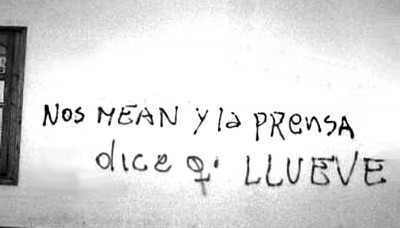 NOS MEAN y la PRensA
dice q' LLUEVE